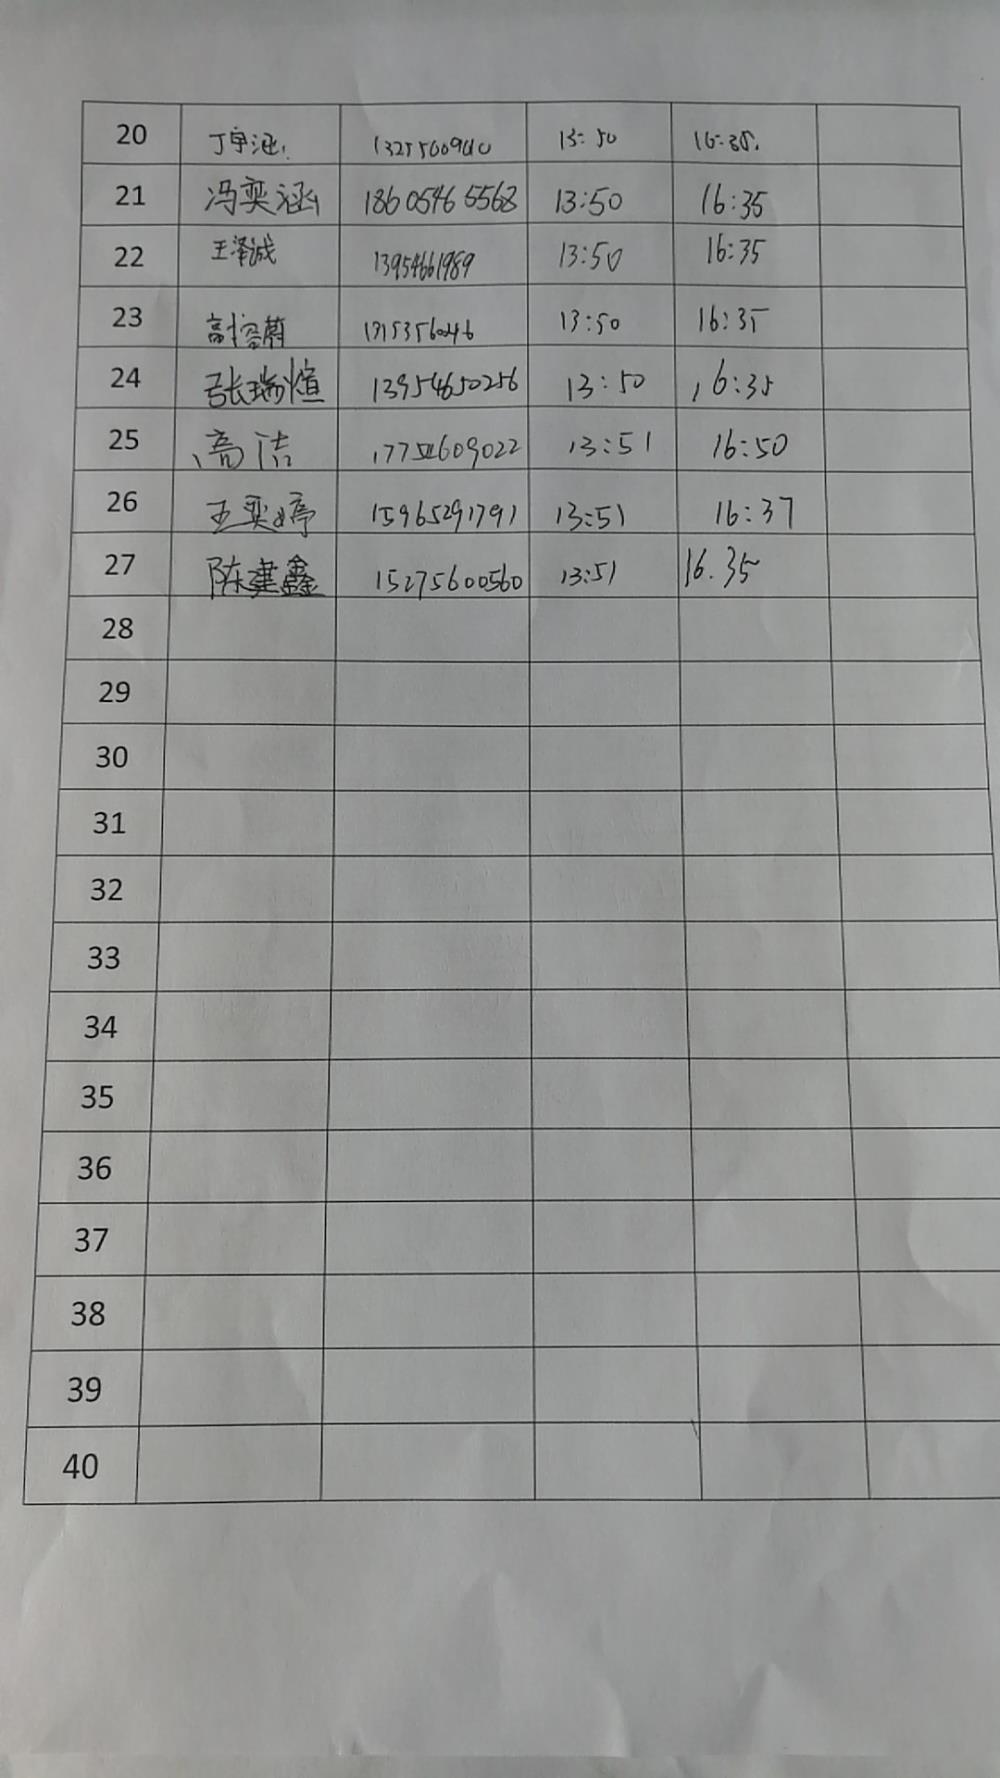 20 丁宇涵 13:50 16:35
21 冯奕涵 18605465568 13:50 16:35
22 王泽诚 13954661989 13:50 16:35
23 13:50 16:35
24 张瑞煊 13954650256 13:50 16:35
25 高洁 13:51 16:50
26 王奕婷 15965291791 13:51 16:37
27 陈建鑫 15275600560 13:51 16.35
28
29
30
31
32
33
34
35
36
37
38
39
40